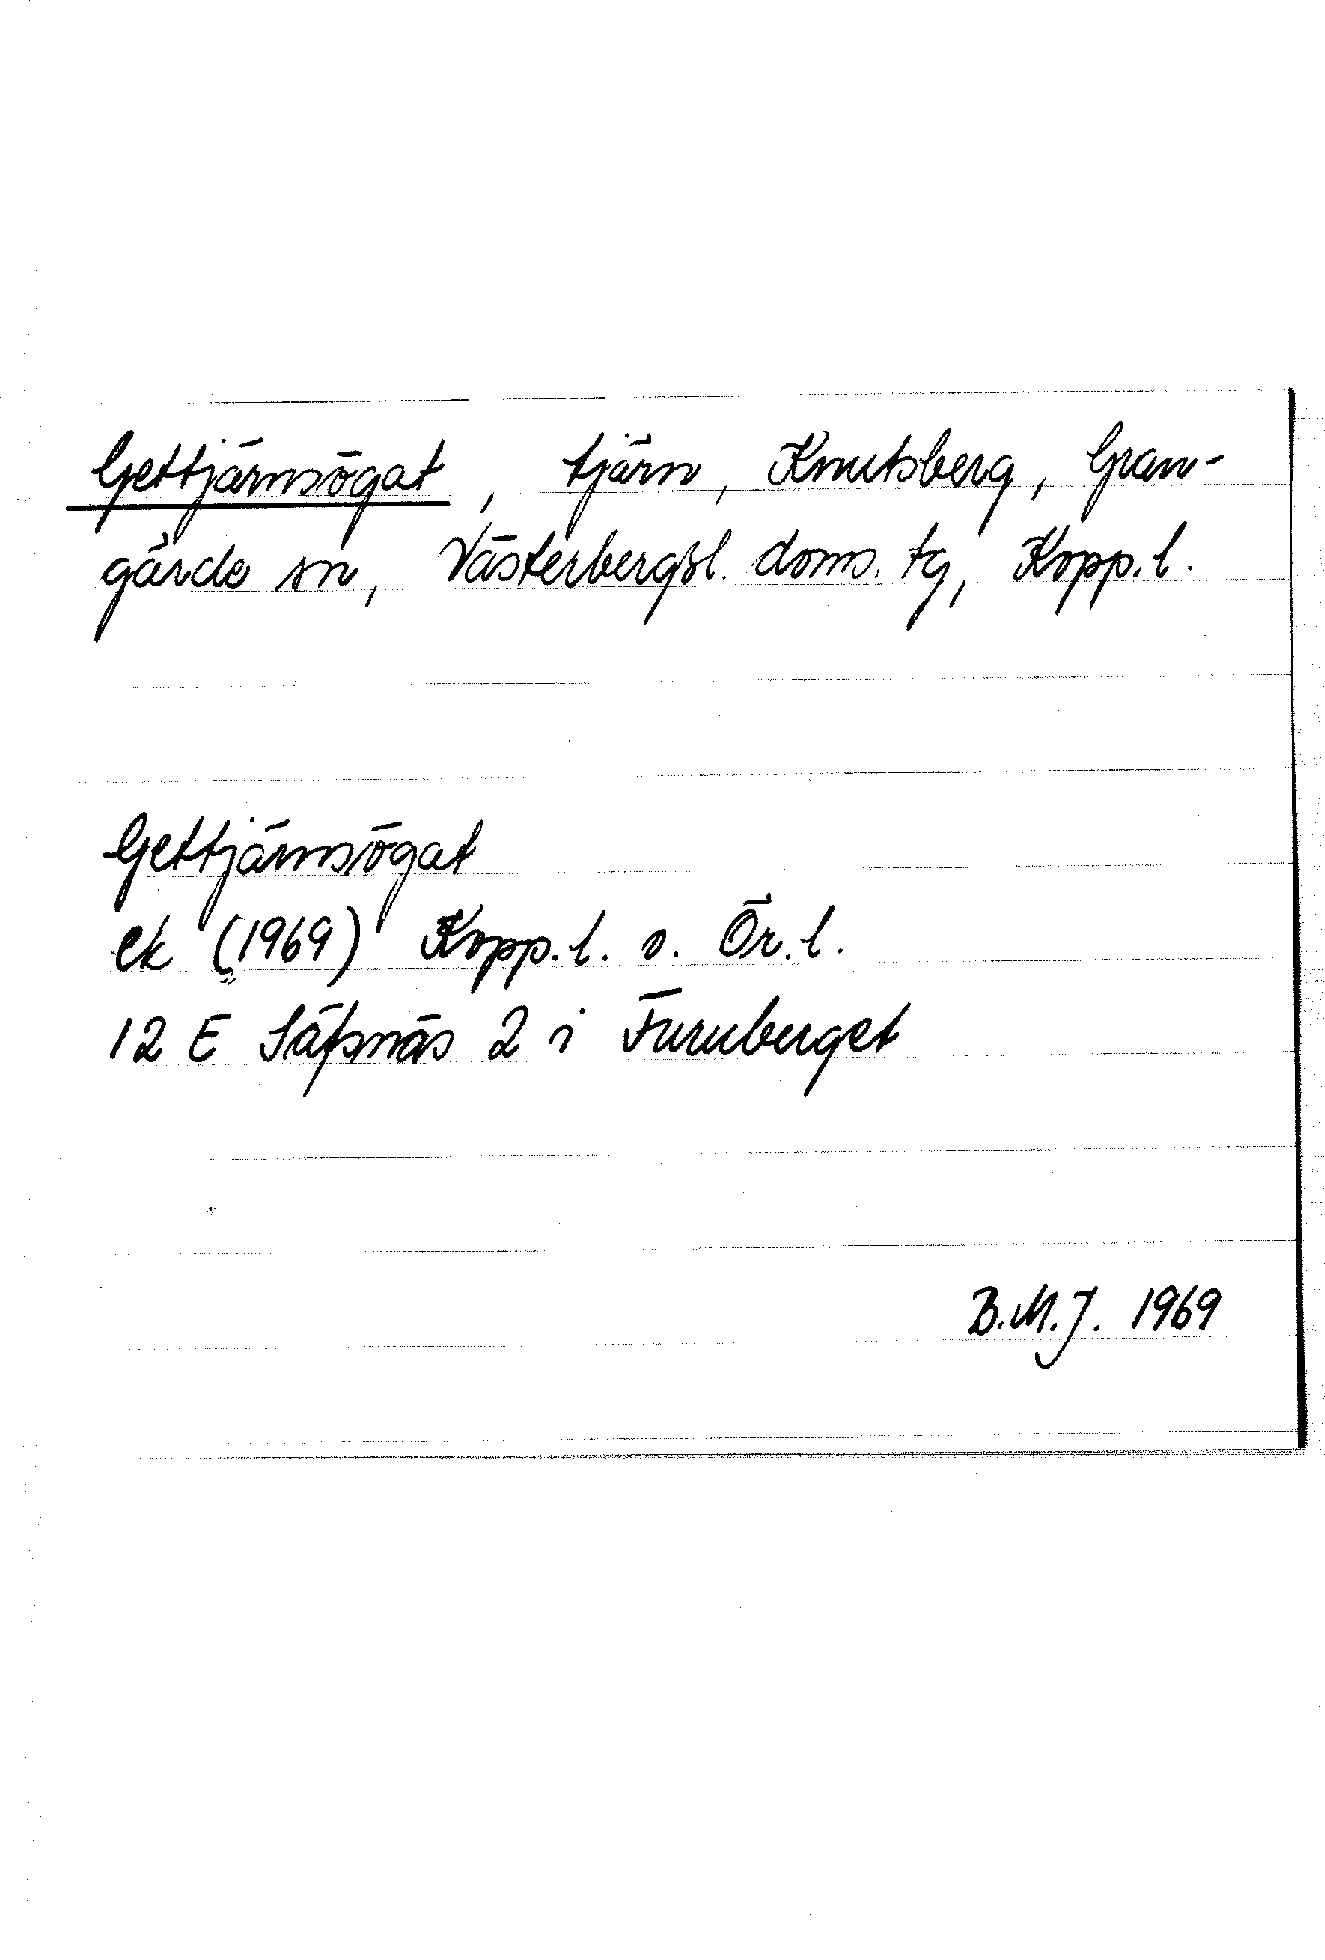 Gettjärnsögat, tjärn, Knutsberg, Gran-
gärde sn, Västerbergsl. doms. tg, Kopp. l.
Gettjärnsögat
ek (1969) Kopp. l. o. Ör. l.
12 E Säfsnäs 2 i Furuberget
B.M.J. 1969